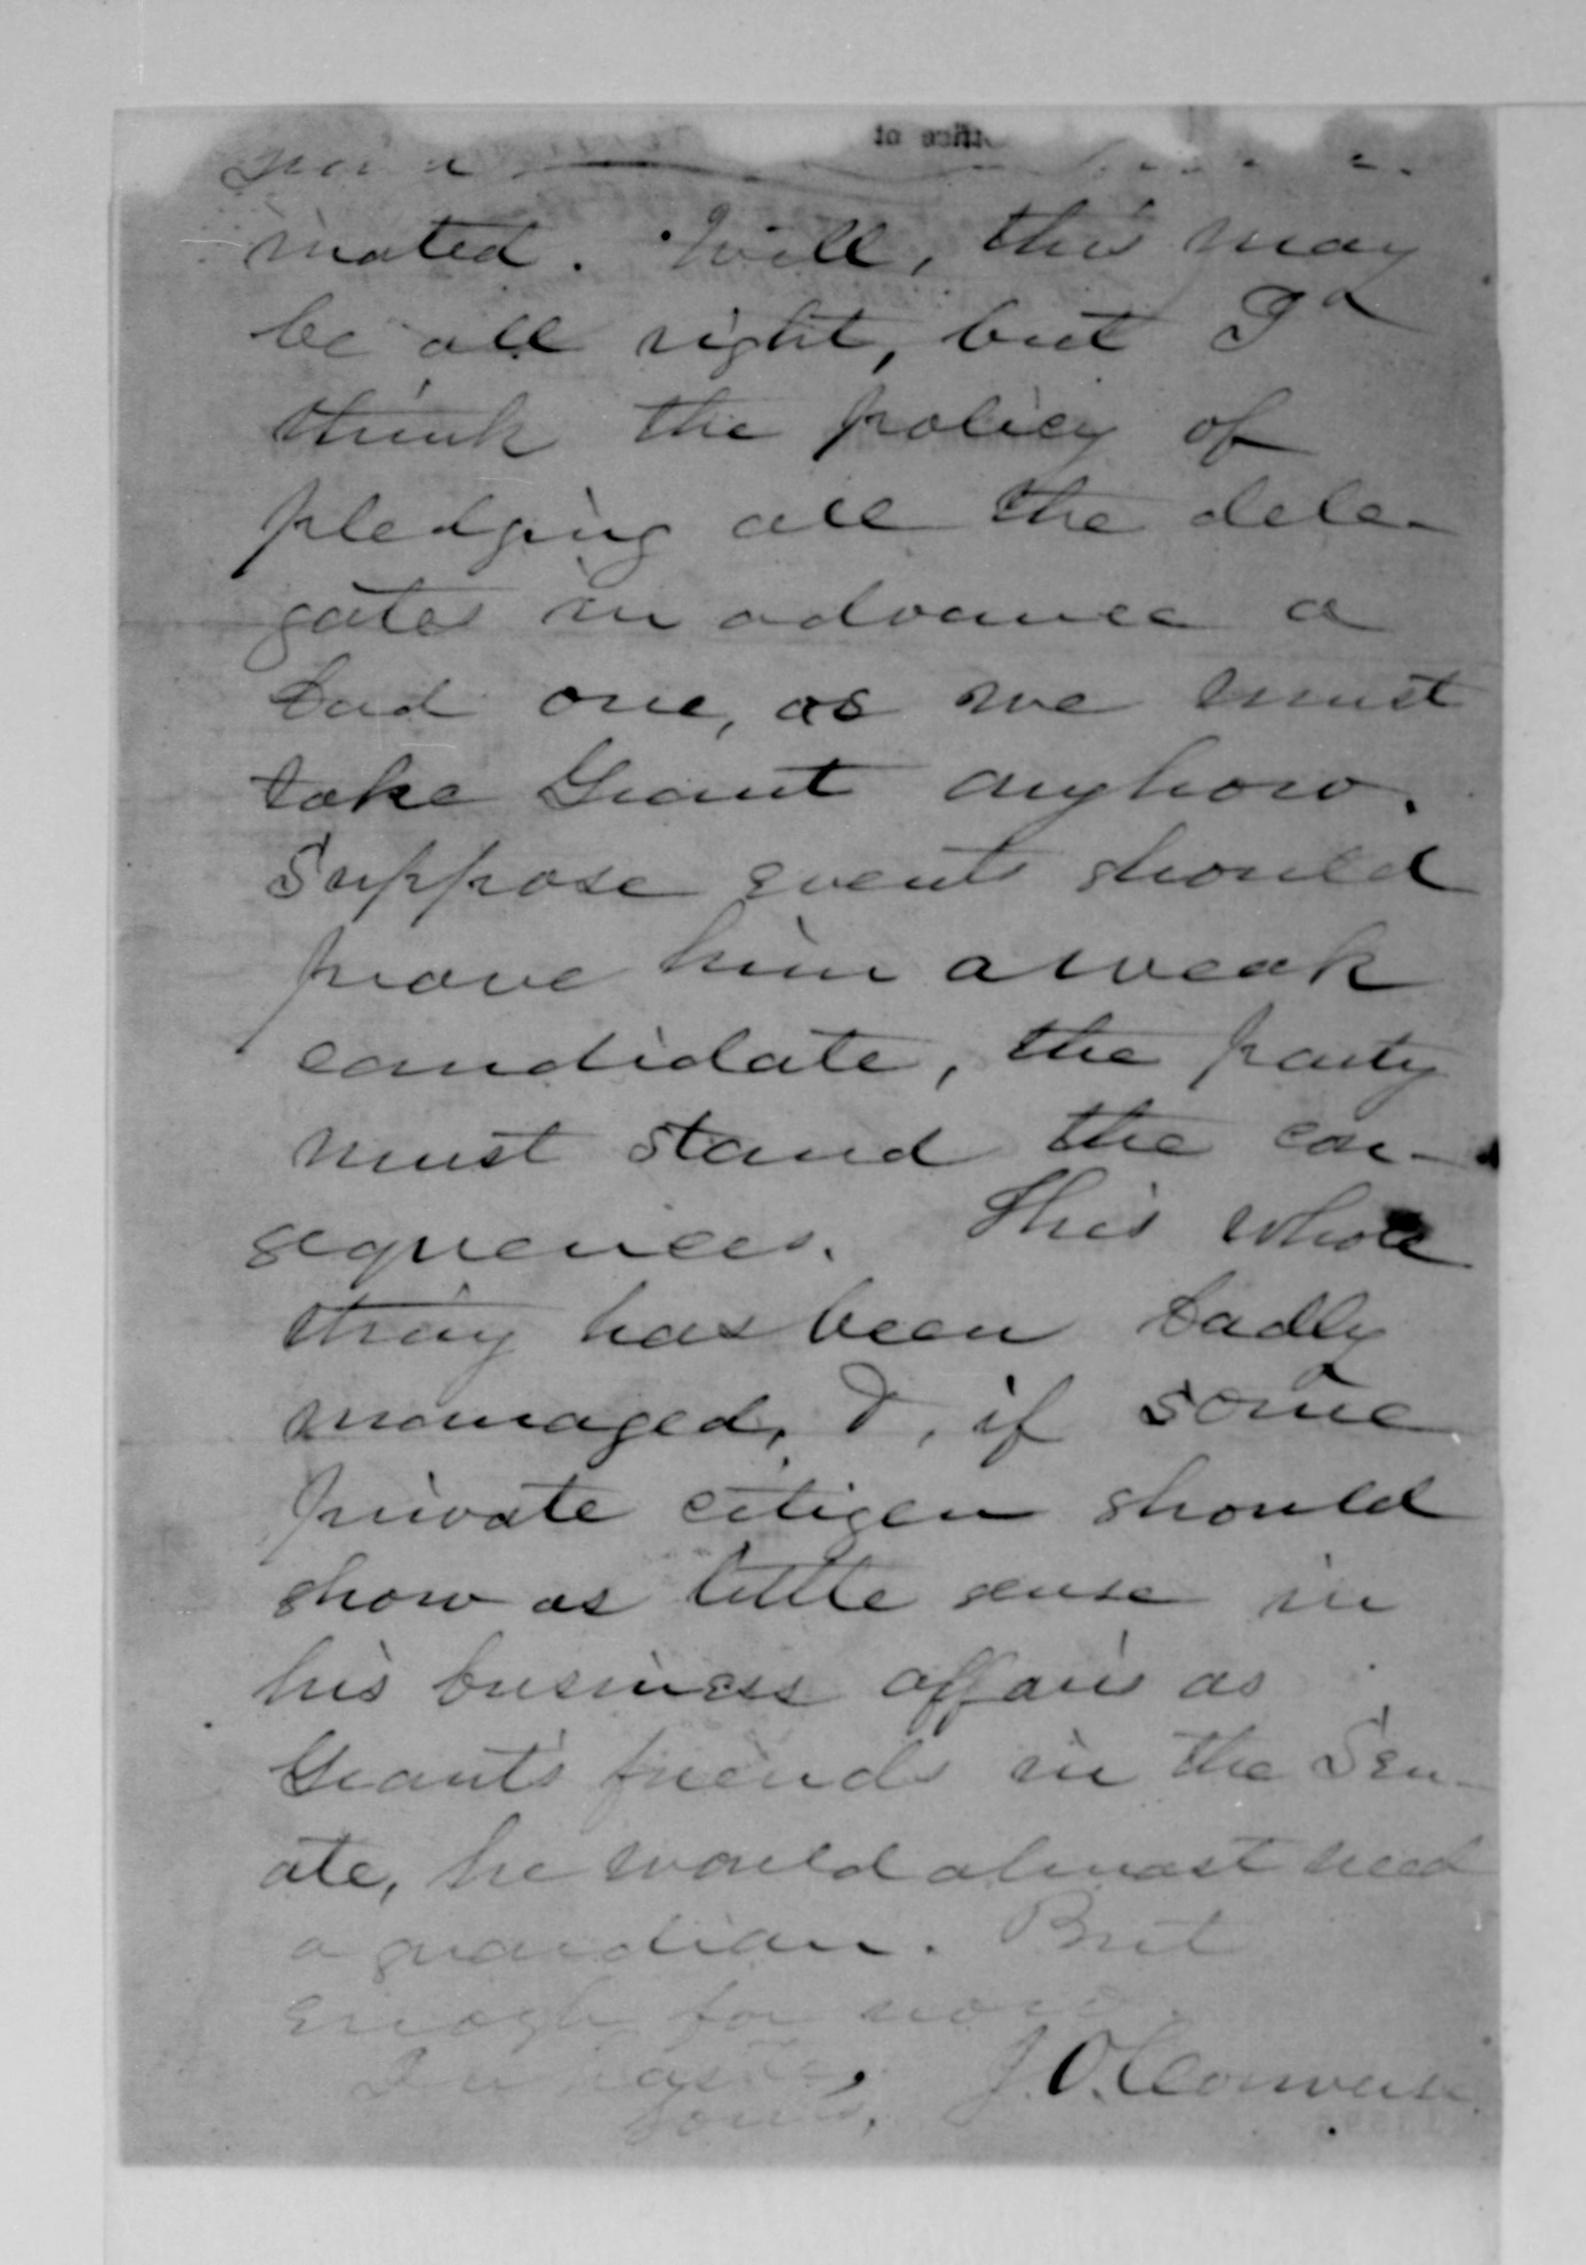 mated. Well, this may
be all right, but I
think the policy of
pledging all the dele-
gates in advance a
bad one, as we must
take Grant anyhow.
Suppose events should
prove him a weak
candidate, the party
must stand the con-
sequences. This whole
thing has been badly
managed, &, if some
private citizen should
show as little sense in
his business affairs as
Grant's friends in the Sen-
ate, he would almost need
a guardian. But
enough for now.
In haste,
Yours,
J.O. Converse.